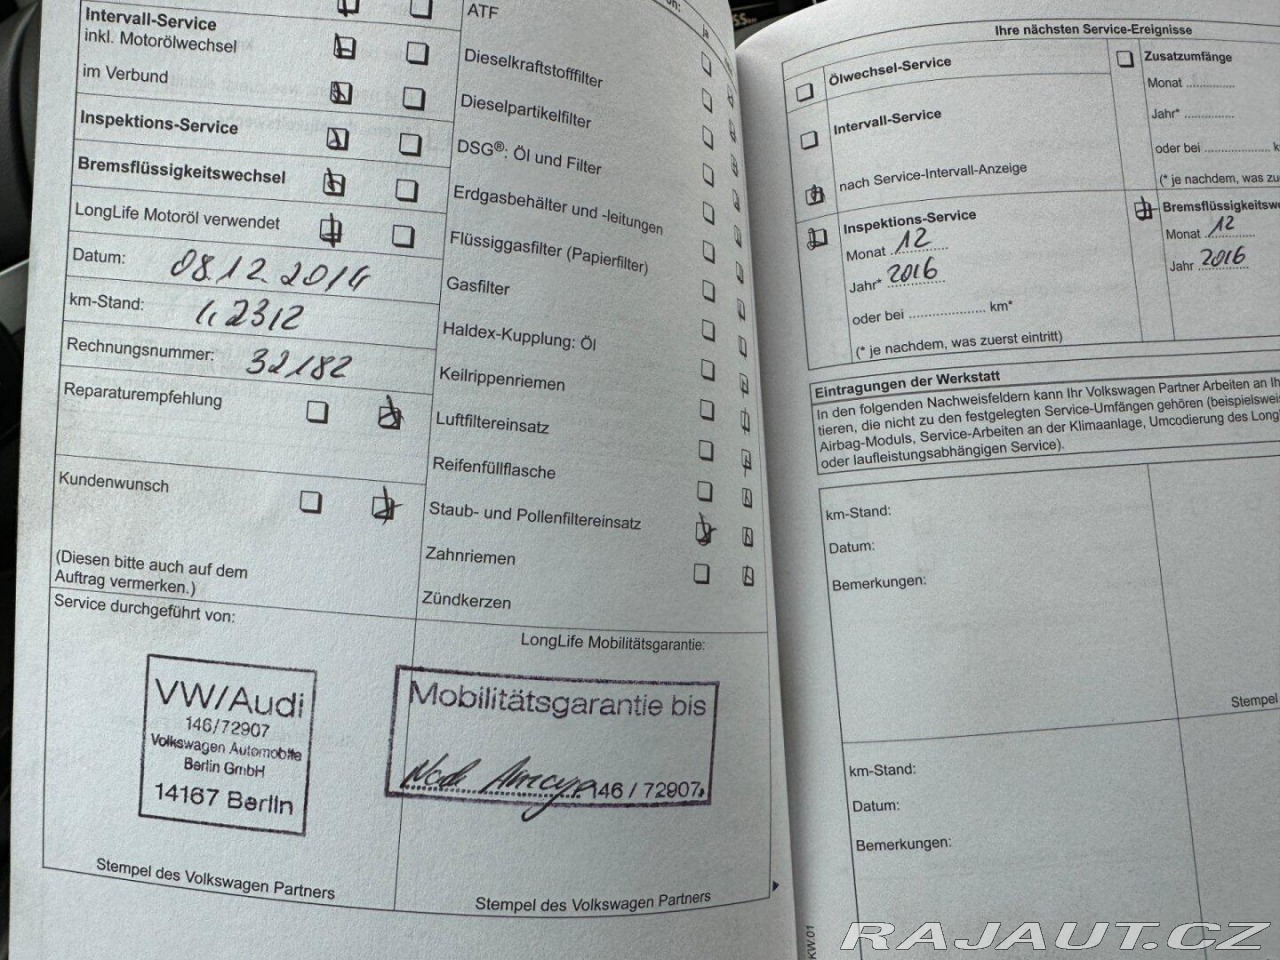 Intervall-Service
inkl. Motorölwechsel
im Verbund
Inspektions-Service
Bremsflüssigkeitswechsel
LongLife Motoröl verwendet
Datum: 08.12.2014
km-Stand: 42312
Rechnungsnummer: 32182
Reparaturempfehlung
Kundenwunsch
(Diesen bitte auch auf dem
Auftrag vermerken.)
Service durchgeführt von:
VW/Audi
146/72907
Volkswagen Automobile
Berlin GmbH
14167 Berlin
Stempel des Volkswagen Partners
ja
ATF
Dieselkraftstofffilter
Dieselpartikelfilter
DSG®: Öl und Filter
Erdgasbehälter und -leitungen
Flüssiggasfilter (Papierfilter)
Gasfilter
Haldex-Kupplung: Öl
Keilrippenriemen
Luftfiltereinsatz
Reifenfüllflasche
Staub- und Pollenfiltereinsatz
Zahnriemen
Zündkerzen
LongLife Mobilitätsgarantie:
Mobilitätsgarantie bis
Nach 146 / 72907
Stempel des Volkswagen Partners
Ihre nächsten Service-Ereignisse
Ölwechsel-Service
Intervall-Service
nach Service-Intervall-Anzeige
Inspektions-Service
Monat 12
Jahr* 2016
oder bei .................... km*
(* je nachdem, was zuerst eintritt)
Zusatzumfänge
Monat .............
Jahr* .............
oder bei .................. k
(* je nachdem, was zu
Bremsflüssigkeitswe
Monat 12
Jahr 2016
Eintragungen der Werkstatt
In den folgenden Nachweisfeldern kann Ihr Volkswagen Partner Arbeiten an Ih
tieren, die nicht zu den festgelegten Service-Umfängen gehören (beispielswei
Airbag-Moduls, Service-Arbeiten an der Klimaanlage, Umcodierung des Long
oder laufleistungsabhängigen Service).
km-Stand:
Datum:
Bemerkungen:
Stempel
km-Stand:
Datum:
Bemerkungen:
KW.01
RAJAUT.CZ